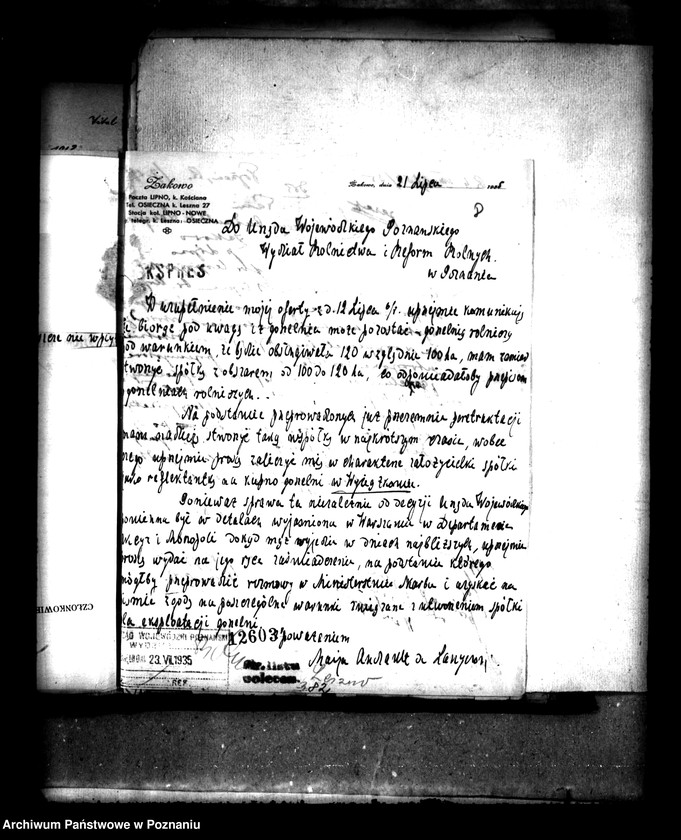 Żakowo
Poczta LIPNO, k. Kościana
Tel. OSIECZNA k. Leszna 27
Stacja kol. LIPNO-NOWE
telegr. k. Leszna: OSIECZNA
Żakowo, dnia 21 Lipca
Do Urzędu Wojewódzkiego Poznańskiego
Wydział Rolnictwa i Reform Rolnych.
w Poznaniu
KSPRES
W uzupełnienie mojej oferty z d. 12 Lipca b/r. uprzejmie komunikuję
iż biorąc pod uwagę iż gorzelnia może pozostać gorzelnią rolniczą
pod warunkiem, iż będzie obsługiwała 120 względnie 100 ha, mam zamiar
stworzyć spółkę z obszarem od 100 do 120 ha, co odpowiadałoby przepisom
gorzelniach rolniczych.
Na podstawie przeprowadzonych już przezemnie pertraktacji
mam stworzyć taką spółkę w najkrótszym czasie, wobec
czego uprzejmie proszę zaliczyć mię w charakterze założycielki spółki
jako reflektantkę na kupno gorzelni w Wyciążkowie.
Ponieważ sprawa ta niezależnie od decyzji Urzędu Wojewódzkiego
powinna być w detalach wyjaśniona w Warszawie w Departamencie
Akcyz i Monopoli dokąd mąż wyjedzie w dniach najbliższych, uprzejmie
proszę wydać na jego ręce zaświadczenie, na podstawie którego
mógłby przeprowadzić rozmowy w Ministerstwie Skarbu i uzyskać na
piśmie zgodę na poszczególne warunki związane z utworzeniem spółki
dla eksploatacji gorzelni.
12603
poważaniem
URZĄD WOJEWÓDZKI POZNAŃSKI
23. VII. 1935
Nr. listu
polecon.
382
Leszno
CZŁONKOWIE
Archiwum Państwowe w Poznaniu